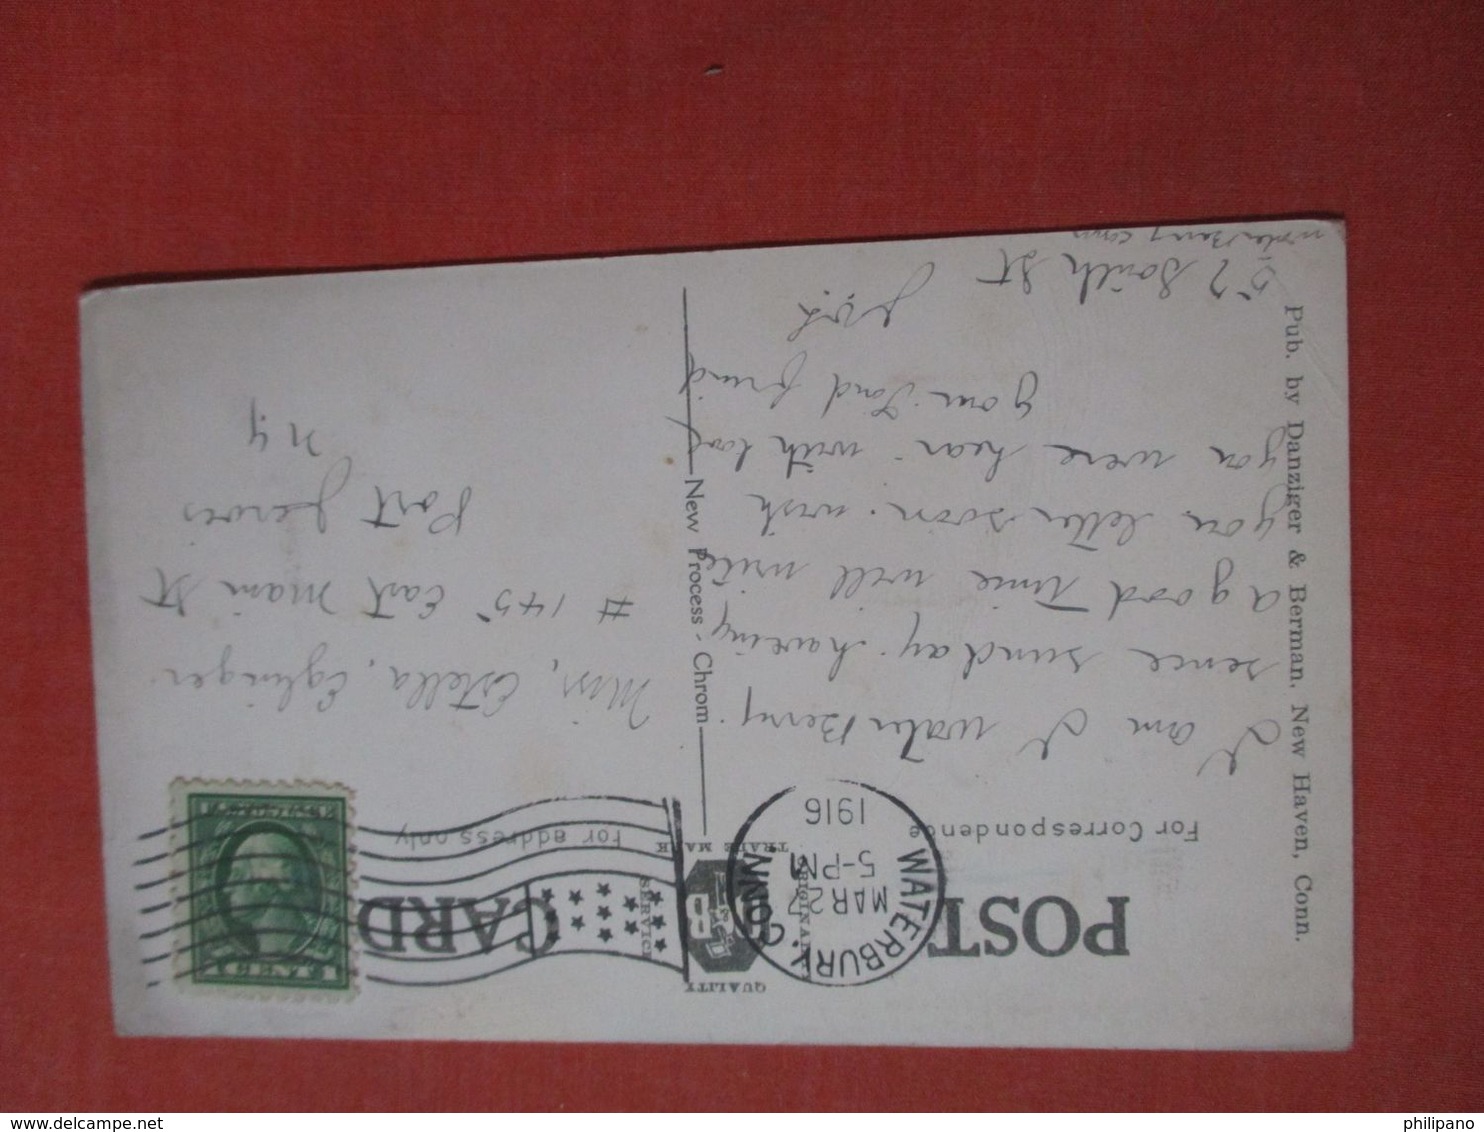 POST CARD
QUALITY
B
ORIGINAL
SERVICE
TRADE MARK
WATERBURY, CONN.
MAR 27
5-PM
1916
For Correspondence
For address only
I am I waterBerry.
sence sunday. having
a good time will write
you letter soon. wish
you were hear. with lov
your Fond frind
57 South St
waterBerry conn
Miss, Estella, Eglinger.
# 145 East Main St
Port Jervis
N Y
New Process-Chrom
Pub. by Danziger & Berman, New Haven, Conn.
delcampe.net
philipano